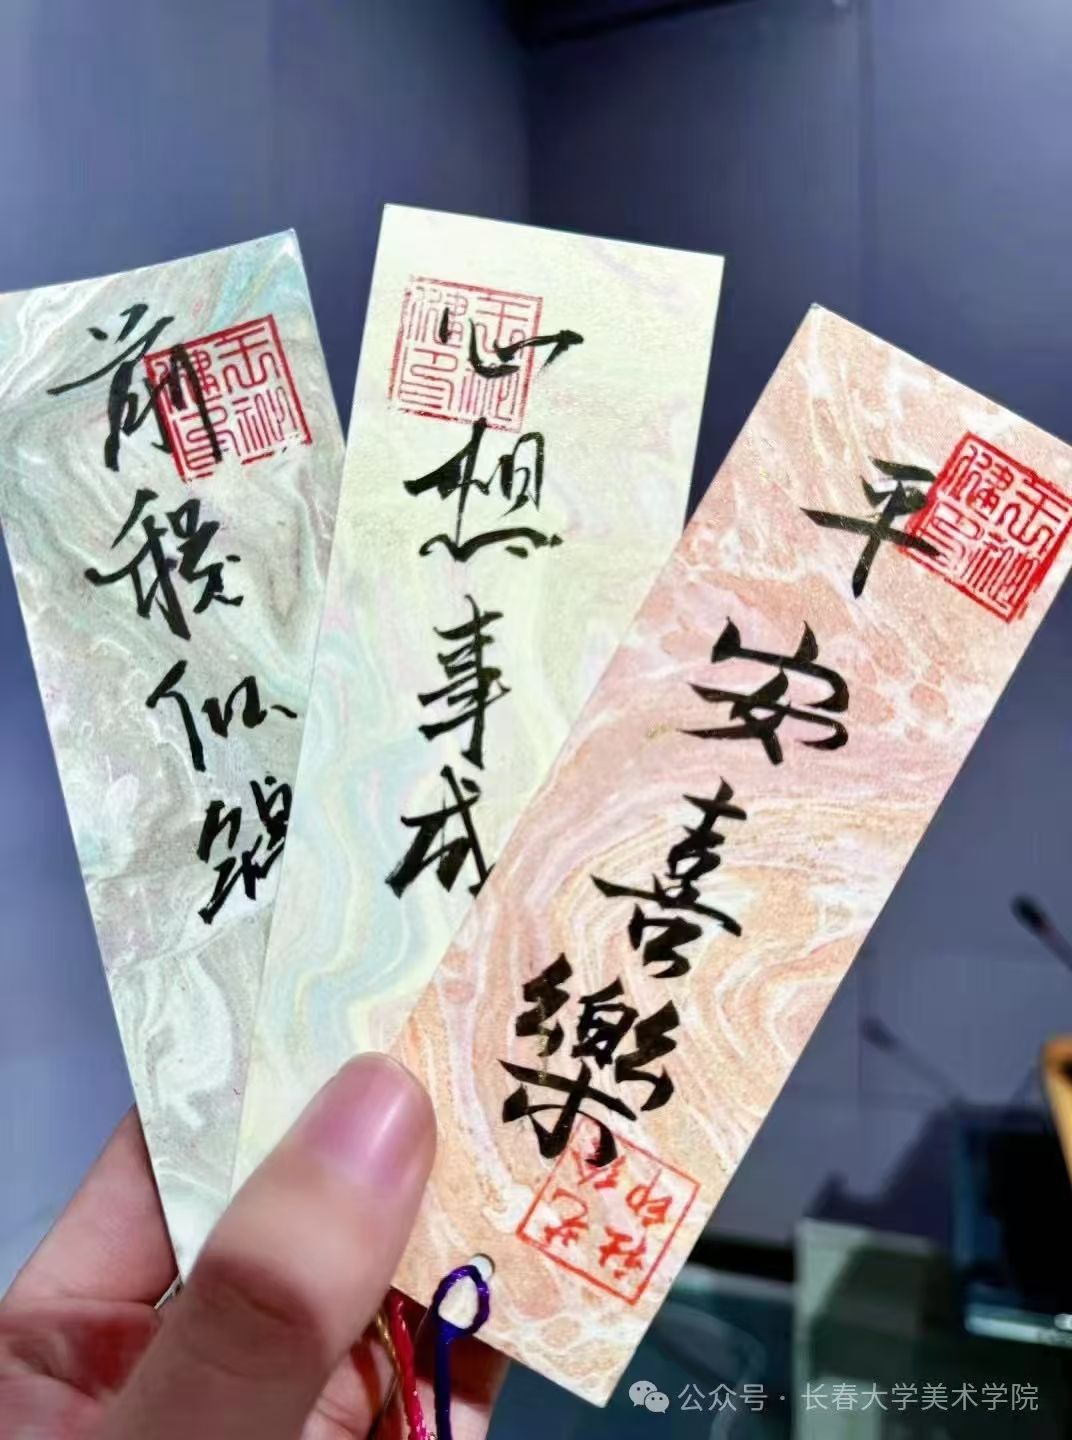 前程似錦
心想事成
平安喜樂
公众号·长春大学美术学院